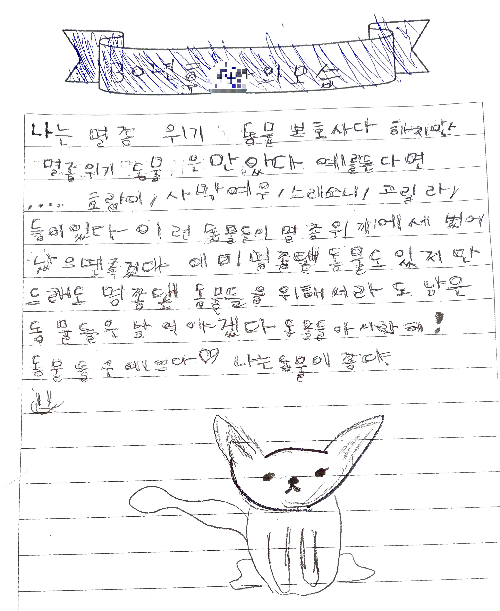 30년 후 의 모습
나는 멸종 위기 동물 보호사다 하지만
멸종위기 동물 은 만았다 예를든다면
.... 호랑이, 사막여우, 코래소니, 고릴라,
들이있다 이런 동물들이 멸종위기에서 벗어
났으면좋겠다 이미 멸종됀 동물도 있지만
그래도 멸종됀 동물들을 위해서라도 남은
동물들은 해겠다 동물들아 사랑해!
동물들은 예쁘다♡ 나는동물이 좋다